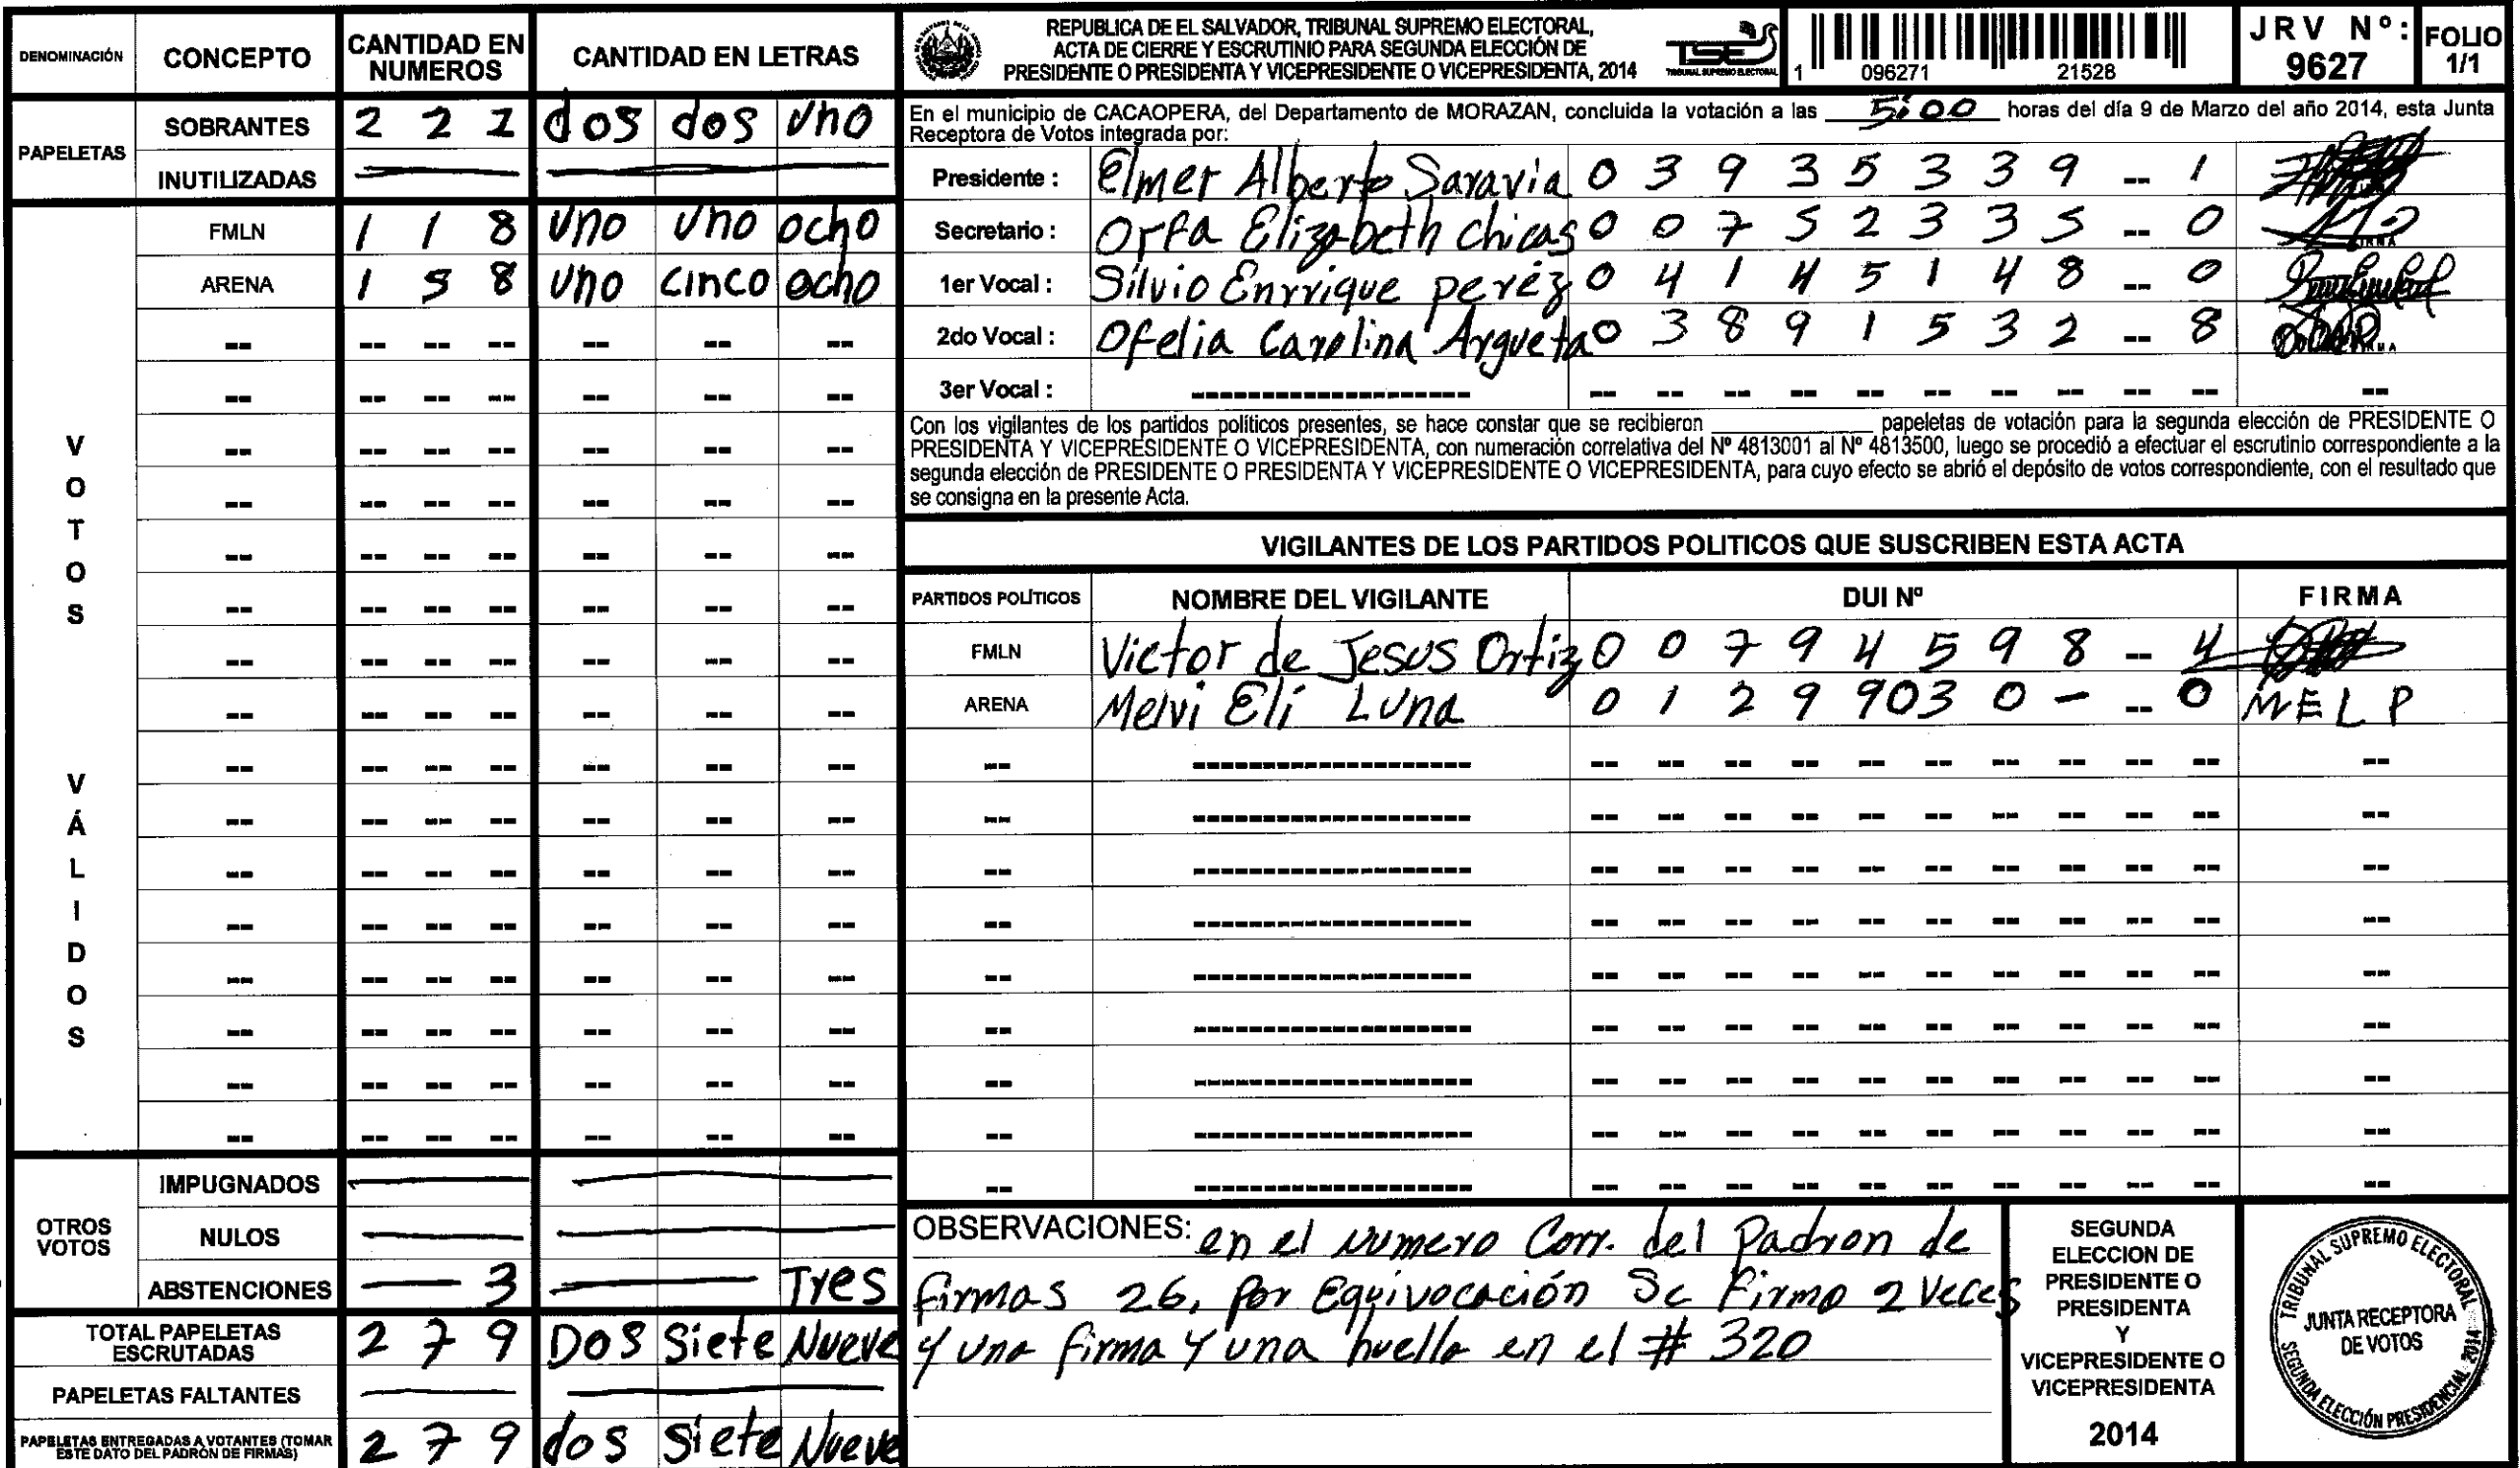 DENOMINACIÓN CONCEPTO CANTIDAD EN NUMEROS CANTIDAD EN LETRAS
PAPELETAS
SOBRANTES 2 2 1 dos dos uno
INUTILIZADAS
VOTOS VÁLIDOS
FMLN 1 1 8 uno uno ocho
ARENA 1 5 8 uno cinco ocho
OTROS VOTOS
IMPUGNADOS
NULOS
ABSTENCIONES — 3 — Tres
TOTAL PAPELETAS ESCRUTADAS 2 7 9 DOS Siete Nueve
PAPELETAS FALTANTES
PAPELETAS ENTREGADAS A VOTANTES (TOMAR ESTE DATO DEL PADRÓN DE FIRMAS) 2 7 9 dos Siete Nueve
REPUBLICA DE EL SALVADOR, TRIBUNAL SUPREMO ELECTORAL,
ACTA DE CIERRE Y ESCRUTINIO PARA SEGUNDA ELECCIÓN DE
PRESIDENTE O PRESIDENTA Y VICEPRESIDENTE O VICEPRESIDENTA, 2014
TSE
TRIBUNAL SUPREMO ELECTORAL
1 096271 21528
JRV Nº: 9627
FOLIO 1/1
En el municipio de CACAOPERA, del Departamento de MORAZAN, concluida la votación a las 5:00 horas del día 9 de Marzo del año 2014, esta Junta
Receptora de Votos integrada por:
Presidente : Elmer Alberto Saravia 0 3 9 3 5 3 3 9 -- 1
Secretario : Orfa Elizabeth chicas 0 0 7 5 2 3 3 5 -- 0
1er Vocal : Silvio Enrrique peréz 0 4 1 4 5 1 4 8 -- 0
2do Vocal : Ofelia Carolina Argueta 0 3 8 9 1 5 3 2 -- 8
3er Vocal :
Con los vigilantes de los partidos políticos presentes, se hace constar que se recibieron ____ papeletas de votación para la segunda elección de PRESIDENTE O
PRESIDENTA Y VICEPRESIDENTE O VICEPRESIDENTA, con numeración correlativa del Nº 4813001 al Nº 4813500, luego se procedió a efectuar el escrutinio correspondiente a la
segunda elección de PRESIDENTE O PRESIDENTA Y VICEPRESIDENTE O VICEPRESIDENTA, para cuyo efecto se abrió el depósito de votos correspondiente, con el resultado que
se consigna en la presente Acta.
VIGILANTES DE LOS PARTIDOS POLITICOS QUE SUSCRIBEN ESTA ACTA
PARTIDOS POLÍTICOS NOMBRE DEL VIGILANTE DUI Nº FIRMA
FMLN Victor de Jesus Ortiz 0 0 7 9 4 5 9 8 -- 4
ARENA Melvi Elí Luna 0 1 2 9 9 0 3 0 - -- 0 MELP
OBSERVACIONES: en el numero Corr. del Padron de
firmas 26, por Equivocación Se Firmo 2 Veces
y una firma y una huella en el # 320
SEGUNDA
ELECCION DE
PRESIDENTE O
PRESIDENTA
Y
VICEPRESIDENTE O
VICEPRESIDENTA
2014
TRIBUNAL SUPREMO ELECTORAL
JUNTA RECEPTORA
DE VOTOS
SEGUNDA ELECCIÓN PRESIDENCIAL 2014